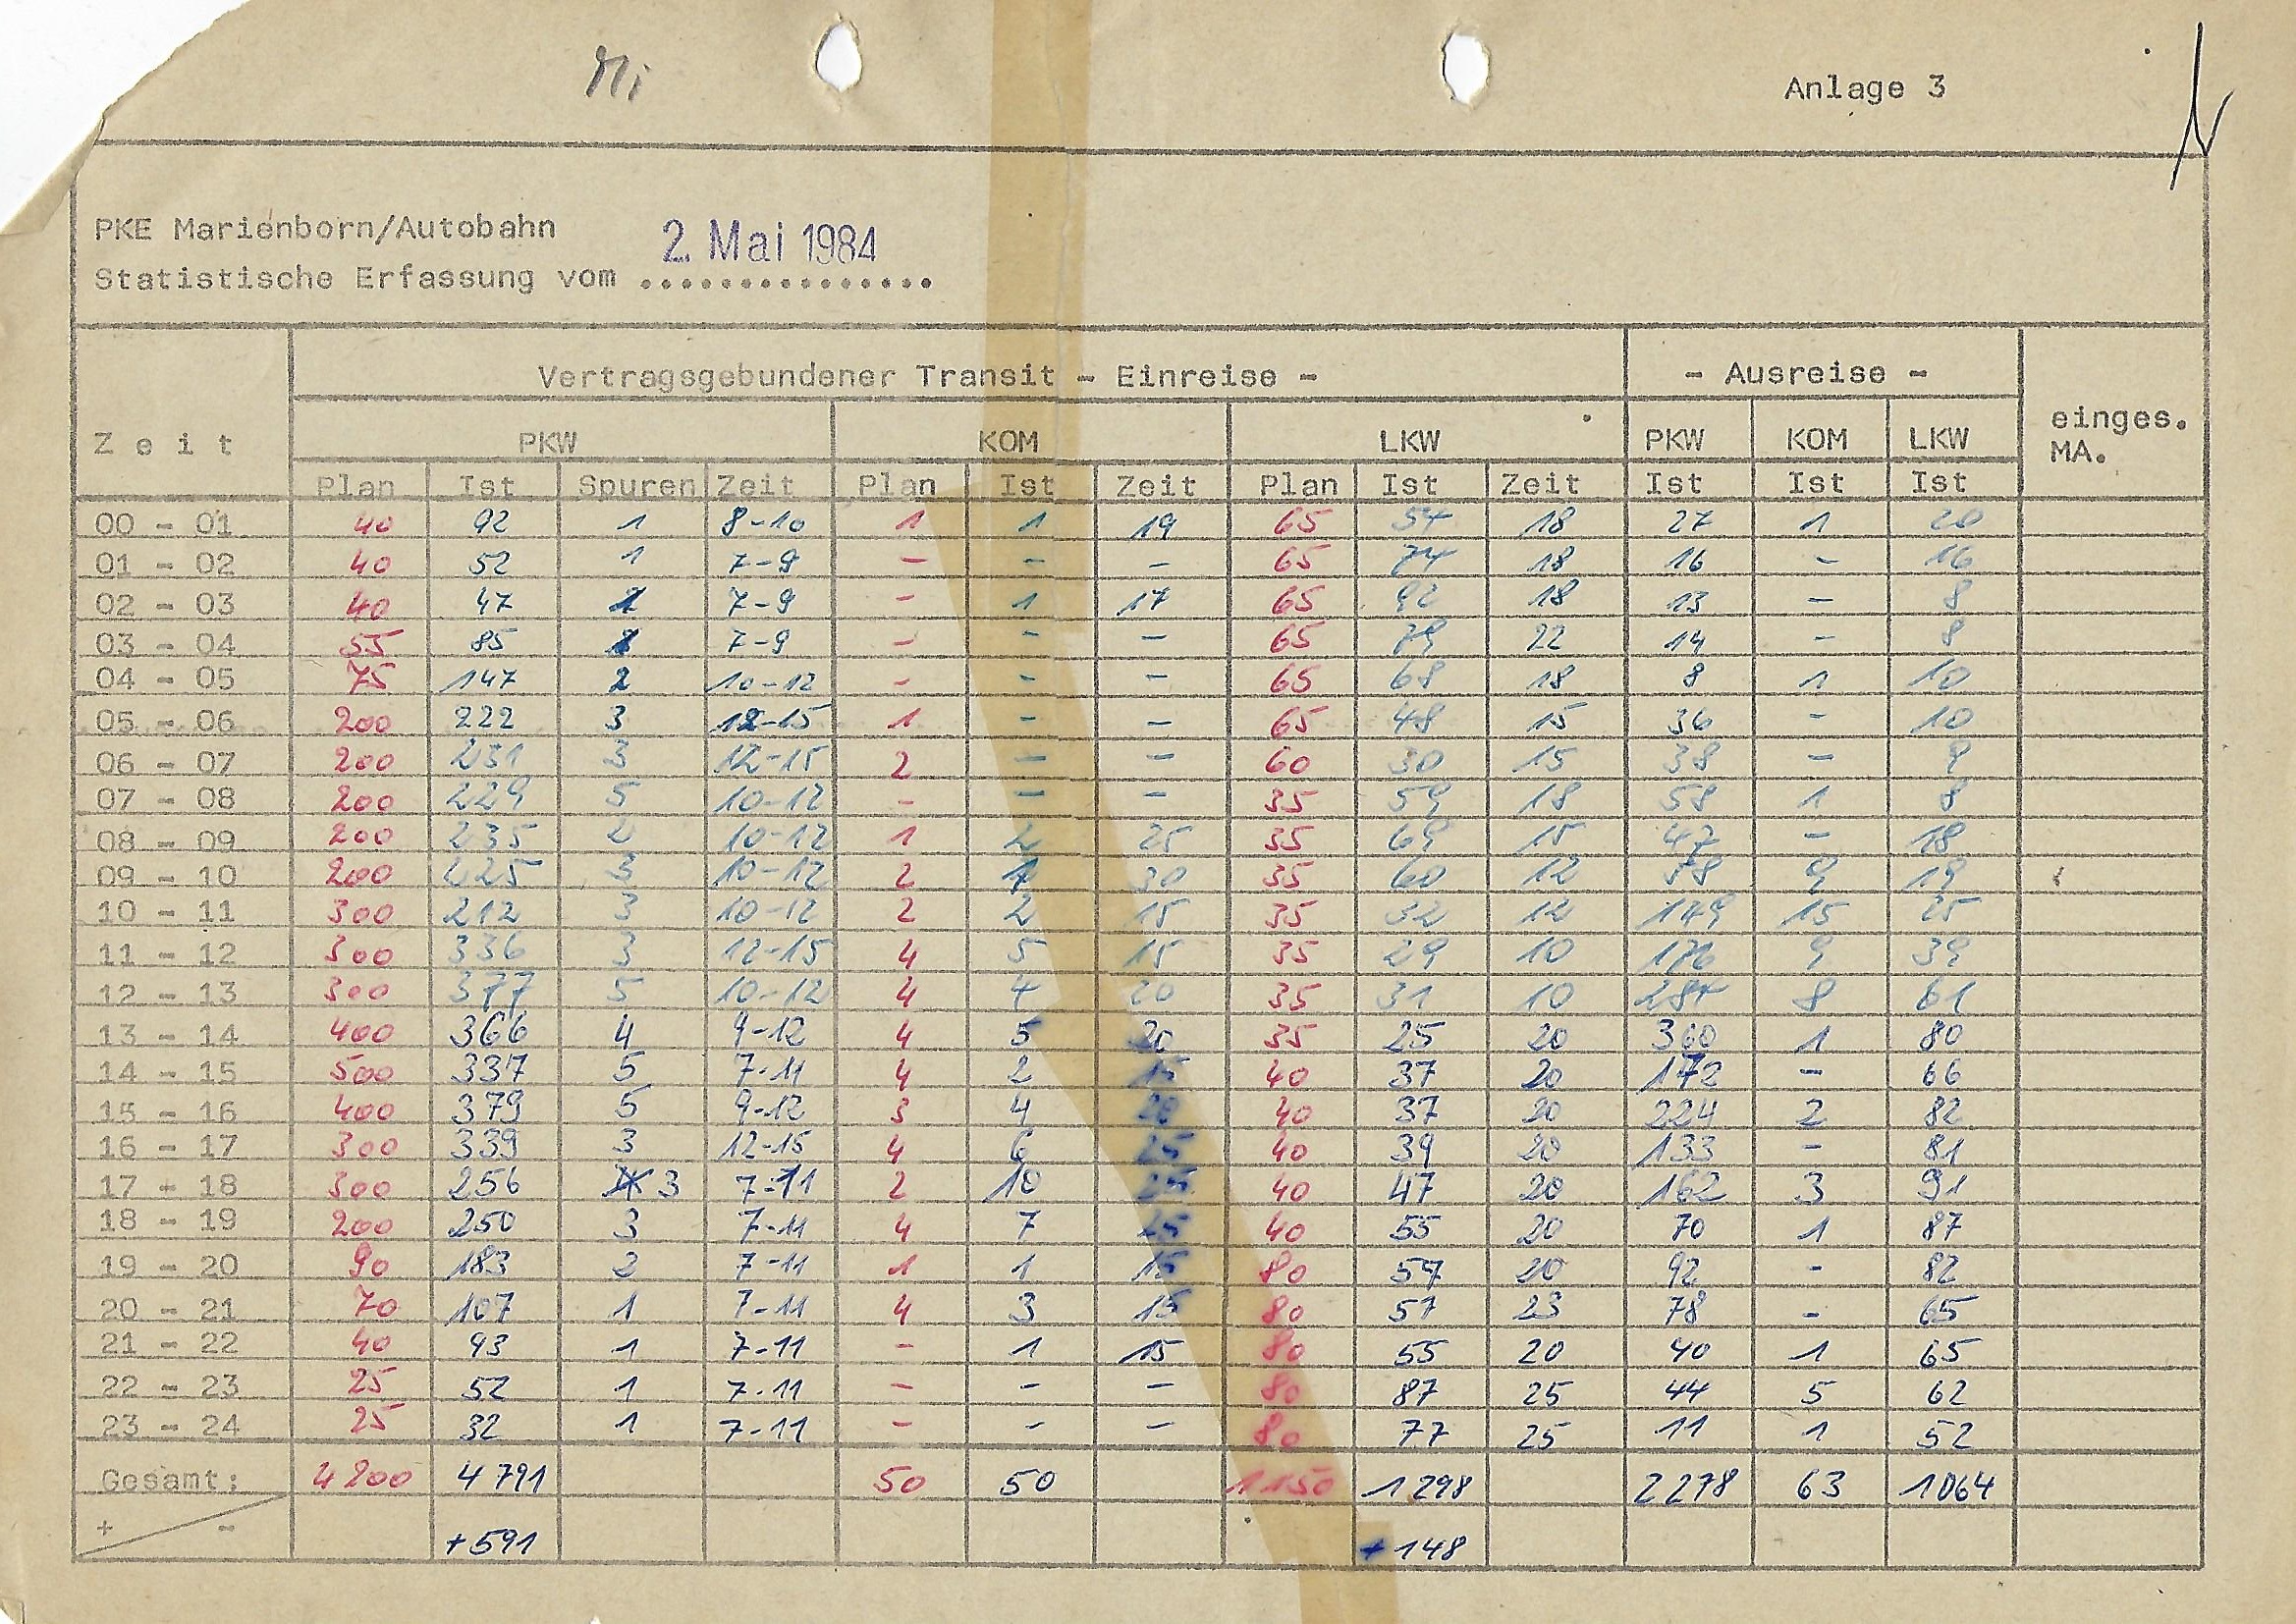 Mi
Anlage 3
PKE Marienborn/Autobahn
2. Mai 1984
Statistische Erfassung vom ...............
Vertragsgebundener Transit - Einreise - - Ausreise -
Zeit PKW KOM LKW PKW KOM LKW einges. MA.
Plan Ist Spuren Zeit Plan Ist Zeit Plan Ist Zeit Ist Ist Ist
00 - 01 40 92 1 8-10 1 1 19 65 54 18 27 1 20
01 - 02 40 52 1 7-9 - - - 65 74 18 16 - 16
02 - 03 40 47 7-9 - 1 17 65 92 18 13 - 8
03 - 04 55 85 7-9 - - - 65 79 22 14 - 8
04 - 05 75 147 2 10-12 - - - 65 68 18 8 1 10
05 - 06 200 222 3 12-15 1 - - 65 48 15 36 - 10
06 - 07 200 231 3 12-15 2 - - 60 30 15 38 - 9
07 - 08 200 229 5 10-12 - - - 35 59 18 58 1 8
08 - 09 200 235 2 10-12 1 2 25 35 69 15 47 - 18
09 - 10 200 225 3 10-12 2 1 30 35 60 12 58 9 19
10 - 11 300 212 3 10-12 2 2 15 35 32 12 149 15 25
11 - 12 300 336 3 12-15 4 5 15 35 29 10 176 9 39
12 - 13 300 377 5 10-12 4 4 20 35 31 10 284 8 61
13 - 14 400 366 4 9-12 4 5 20 35 25 20 360 1 80
14 - 15 500 337 5 7-11 4 2 15 40 37 20 172 - 66
15 - 16 400 379 5 9-12 3 4 20 40 37 20 224 2 82
16 - 17 300 339 3 12-15 4 6 25 40 39 20 133 - 81
17 - 18 300 256 3 7-11 2 10 40 47 20 162 3 91
18 - 19 200 250 3 7-11 4 7 40 55 20 70 1 87
19 - 20 90 183 2 7-11 1 1 15 80 57 20 92 - 82
20 - 21 70 107 1 7-11 4 3 15 80 57 23 78 - 65
21 - 22 40 93 1 7-11 - 1 15 80 55 20 40 1 65
22 - 23 25 52 1 7-11 - - - 80 87 25 44 5 62
23 - 24 25 32 1 7-11 - - - 80 77 25 11 1 52
Gesamt: 4200 4791 50 50 1150 1298 2278 63 1064
+ - +591 +148